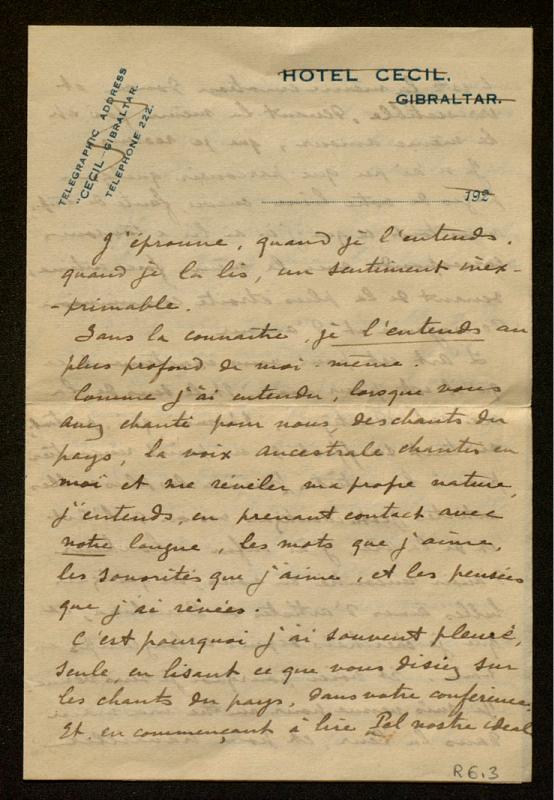 TELEGRAPHIC ADDRESS
"CECIL-GIBRALTAR.
TELEPHONE 222.
HOTEL CECIL.
GIBRALTAR.
192
J'éprouve, quand je l'entends,
quand je la lis, un sentiment inex-
-primable.
Sans la connaître, je l'entends au
plus profond de moi-même.
Comme j'ai entendu, lorsque vous
avez chanté pour nous, des chants du
pays, la voix ancestrale chanter en
moi et me révéler ma propre nature,
j'entends, en prenant contact avec
notre langue, les mots que j'aime,
les sonorités que j'aime, et les pensées
que j'ai rêvées.
C'est pourquoi j'ai souvent pleuré,
seule, en lisant ce que vous disiez sur
les chants du pays, dans votre conférence.
Et en commençant à lire Pel nostre ideal
R6.3